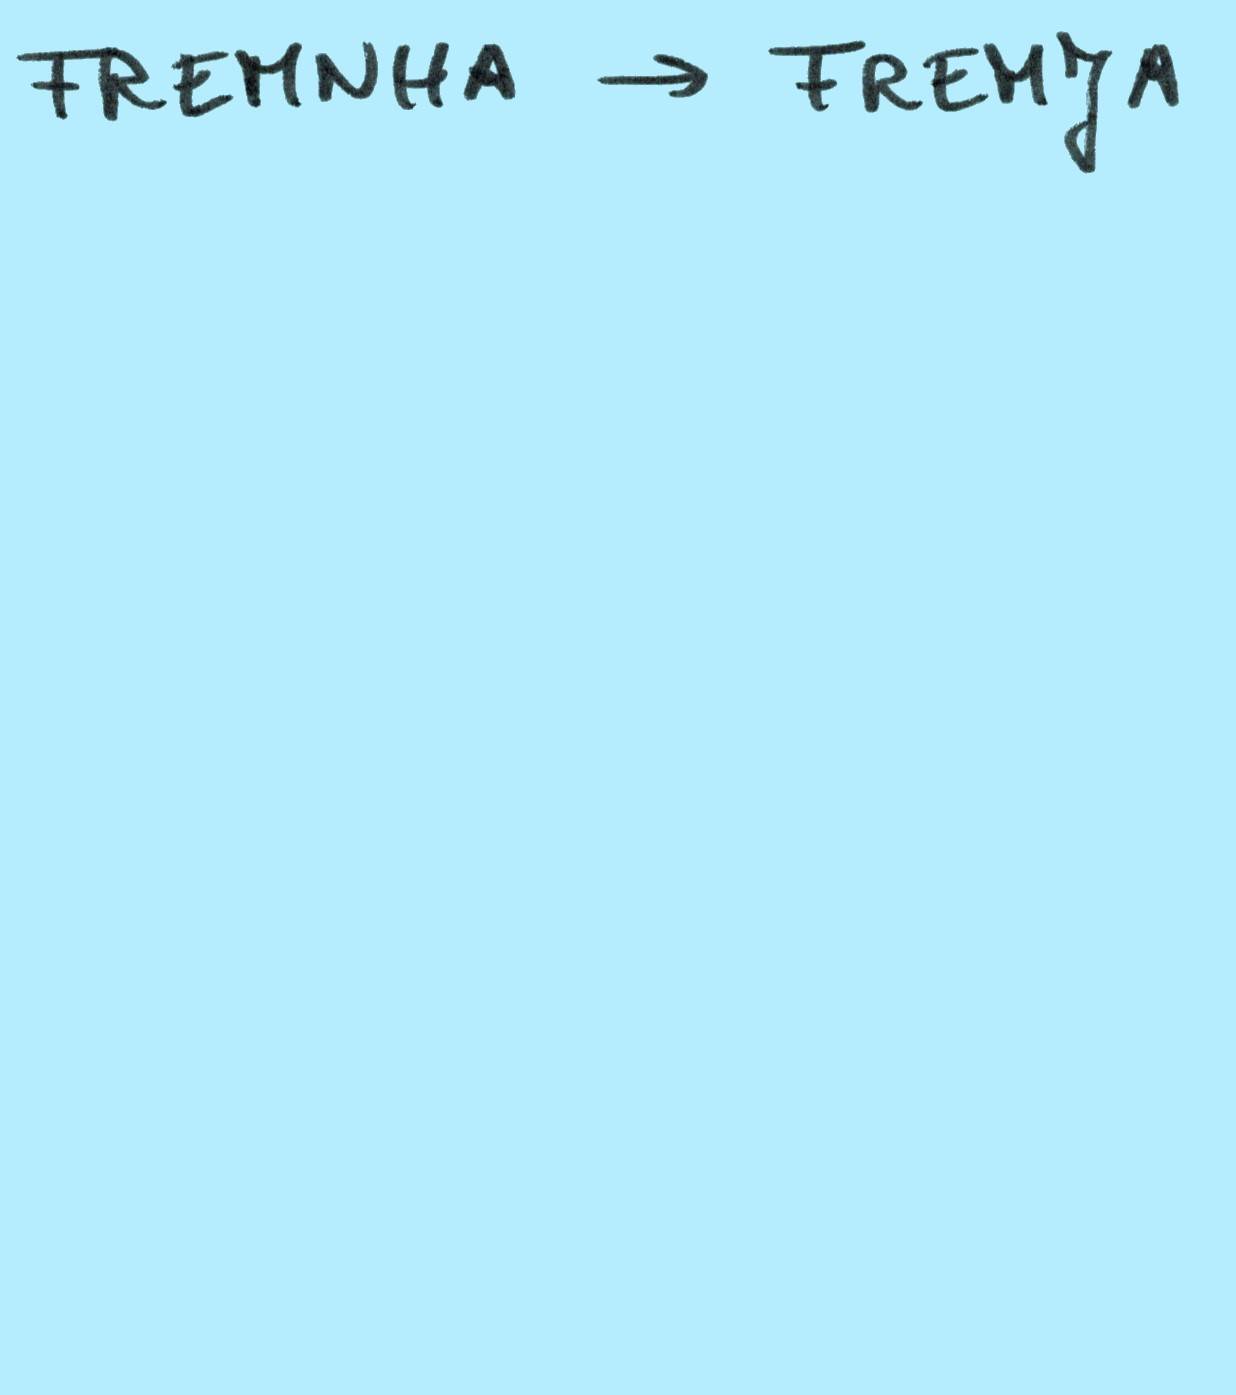 FREMNHA → FREMȠA